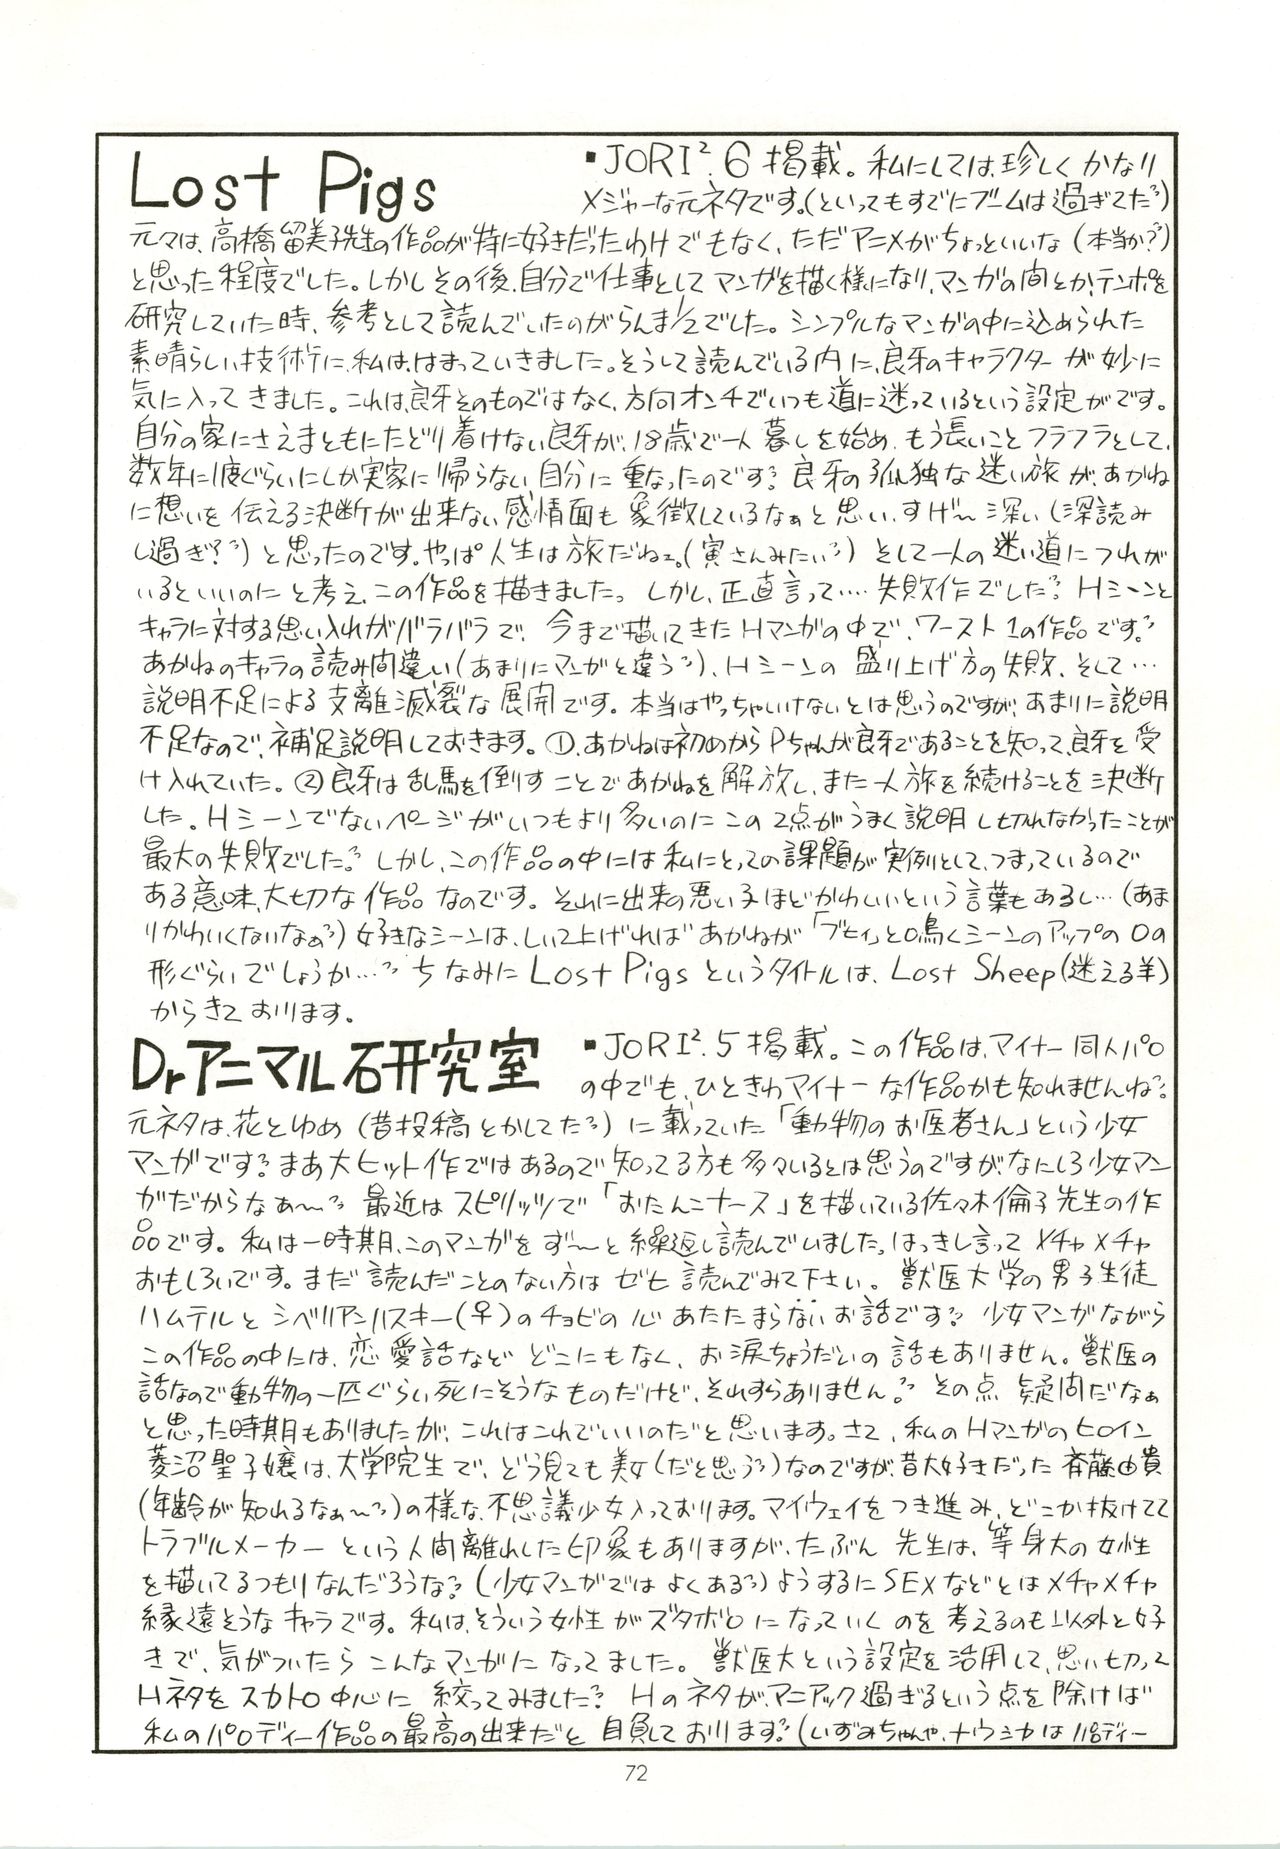 Lost Pigs
▪JORI². 6 掲載。私にしては、珍しくかなり
メジャーな元ネタです。(といってもすでにブームは過ぎてた〃)
元々は、高橋留美子先生の作品が特に好きだったわけでもなく、ただアニメがちょっといいな(本当か?〃)
と思った程度でした。しかしその後、自分で仕事としてマンガを描く様になり、マンガの間とか、テンポを
研究していた時、参考として読んでいたのがらんま1/2でした。シンプルなマンガの中に込められた
素晴らしい技術に、私は、はまっていきました。そうして読んでいる内に、良牙のキャラクターが妙に
気に入ってきました。これは、良牙そのものではなく、方向オンチでいつも道に迷っているという設定がです。
自分の家にさえまともにたどり着けない良牙が、18歳で一人暮しを始め、もう長いことフラフラとして、
数年に1度ぐらいにしか実家に帰らない自分に重なったのです〃。良牙の孤独な迷い旅が、あかね
に想いを伝える決断が出来ない感情面も象徴しているなぁと思い、すげ〜深い(深読み
し過ぎ?〃)と思ったのです。やっぱ人生は旅だねェ。(寅さんみたい〃)そして一人の迷い道につれが
いるといいのにと考え、この作品を描きました。しかし、正直言って‥‥失敗作でした〃。Hシーンと
キャラに対する思い入れがバラバラで、今まで描いてきたHマンガの中で、ワースト1の作品です。〃
あかねのキャラの読み間違い(あまりにマンガと違う〃)、Hシーンの盛り上げ方の失敗、そして…
説明不足による支離滅裂な展開です。本当はやっちゃいけないとは思うのですが、あまりに説明
不足なので、補足説明しておきます。①、あかねは初めからPちゃんが良牙であることを知って、良牙を受
け入れていた。②良牙は乱馬を倒すことであかねを解放し、また一人旅を続けることを決断
した。Hシーンでないページがいつもより多いのにこの2点がうまく説明し切れなかったことが
最大の失敗でした。〃しかし、この作品の中には私にとっての課題が実例として、つまっているので
ある意味、大切な作品なのです。それに出来の悪い子ほどかわいいという言葉もあるし…(あま
りかわいくないなぁ〃)好きなシーンは、しいて上げれば あかねが「ブヒィ」と鳴くシーンのアップの口の
形ぐらいでしょうか…〃ちなみにLost Pigsというタイトルは、Lost Sheep(迷える羊)
からきております。
Drアニマル石研究室
▪JORI². 5 掲載。この作品は、マイナー同人パロ
の中でも、ひときわマイナーな作品かも知れませんね〃。
元ネタは、花とゆめ(昔投稿とかしてた〃)に載っていた「動物のお医者さん」という少女
マンガです〃。まあ大ヒット作ではあるので知ってる方も多々いるとは思うのですが、なにしろ少女マン
ガだからなぁ〜〃 最近はスピリッツで「おたんこナース」を描いている佐々木倫子先生の作
品です。私は一時期、このマンガをず〜と繰返し読んでいました。はっきし言ってメチャメチャ
おもしろいです。まだ読んだことのない方はゼヒ読んでみて下さい。獣医大学の男子生徒
ハムテルとシベリアンハスキー(♀)のチョビの心あたたまらないお話です〃。少女マンガながら
この作品の中には、恋愛話などどこにもなく、お涙ちょうだいの話もありません。獣医の
話なので動物の一匹ぐらい死にそうなものだけど、それすらありません。〃その点疑問だなぁ
と思った時期もありましたが、これはこれでいいのだと思います。さて、私のHマンガのヒロイン
菱沼聖子嬢は、大学院生で、どう見ても美女(だと思う〃)なのですが、昔大好きだった斉藤由貴
(年齢が知れるなぁ〜〃)の様な、不思議少女入っております。マイウェイをつき進み、どこか抜けてて
トラブルメーカーという人間離れした印象もありますが、たぶん先生は、等身大の女性
を描いてるつもりなんだろうな〃。(少女マンガではよくある〃)ようするにSEXなどとはメチャメチャ
縁遠そうなキャラです。私は、そういう女性がズタボロになっていくのを考えるのも以外と好
きで、気がついたらこんなマンガになってました。獣医大という設定を活用して、思い切って
Hネタをスカトロ中心に絞ってみました〃。Hのネタが、マニアック過ぎるという点を除けば
私のパロディー作品の最高の出来だと自負しております〃。(いずみちゃんや、ナウシカはパロディー
72